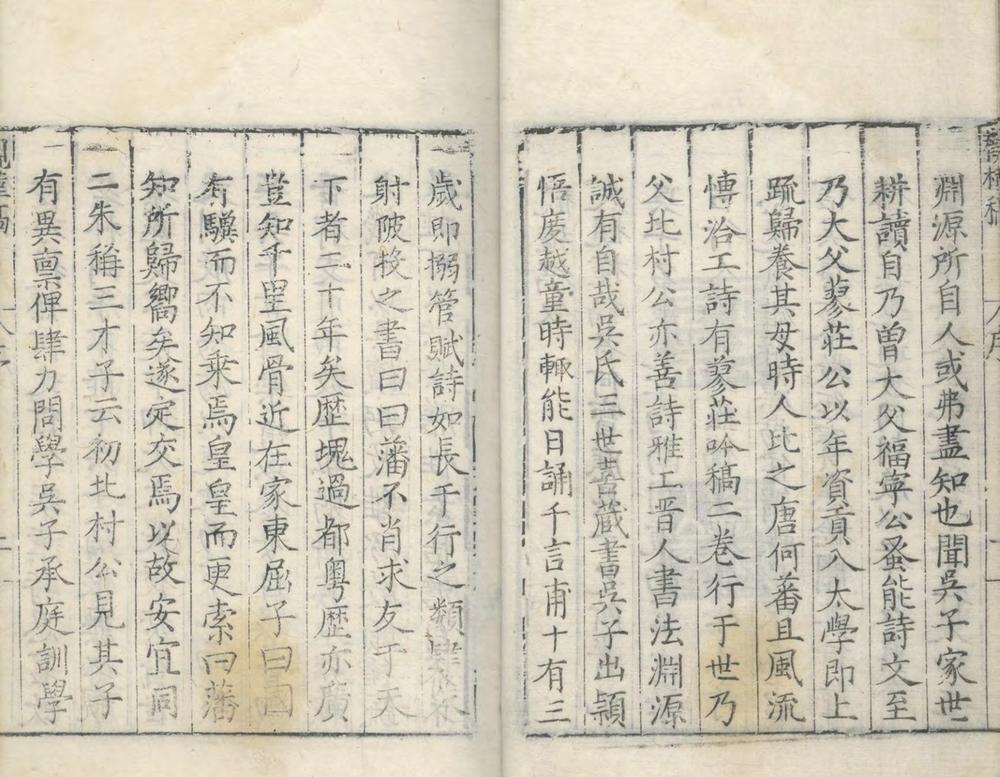 淵源所自人或弗盡知也聞吳子家世
耕讀自乃曾大父福寧公蚤能詩文至
乃大父蓼莊公以年資貢入太學即上
疏歸養其母時人比之唐何蕃且風流
愽洽工詩有蓼莊吟稿二卷行于世乃
父北村公亦善詩雅工晋人書法淵源
誠有自哉吳氏三世蓄藏書吳子出穎
悟度越童時輙能日誦千言甫十有三
歲即搦管賦詩如長干行之類
射陂投之書曰曰藩不肖求友于天
下者三十年矣歷塊過都粤歷亦廣
豈知千里風骨近在家東屈子曰國
有驥而不知乗焉皇皇而更索曰藩
知所歸嚮矣遂定交焉以故安宜同
二朱稱三才子云初北村公見其子
有異稟俾肆力問學吳子承庭訓學